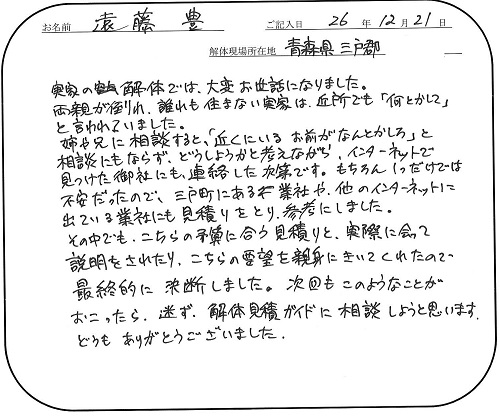 お名前 遠藤 豊 ご記入日 26 年 12 月 21 日
解体現場所在地 青森県三戸郡
実家の解体では、大変お世話になりました。
両親が倒れ、誰れも住まない実家は、近所でも「何とかして」
と言われていました。
姉や兄に相談すると、「近くにいるお前がなんとかしろ」と
相談にもならず、どうしようかと考えながら、インターネットで
見つけた御社にも、連絡した次第です。もちろん1つだけでは
不安だったので、三戸町にある業社や、他のインターネットに
出ている業社にも見積りをとり、参考にしました。
その中でも、こちらの予算に合う見積りと、実際に会って
説明をされたり、こちらの要望を親身にきいてくれたので
最終的に決断しました。次回もこのようなことが
おこったら、迷ず、解体見積ガイドに相談しようと思います。
どうもありがとうございました。